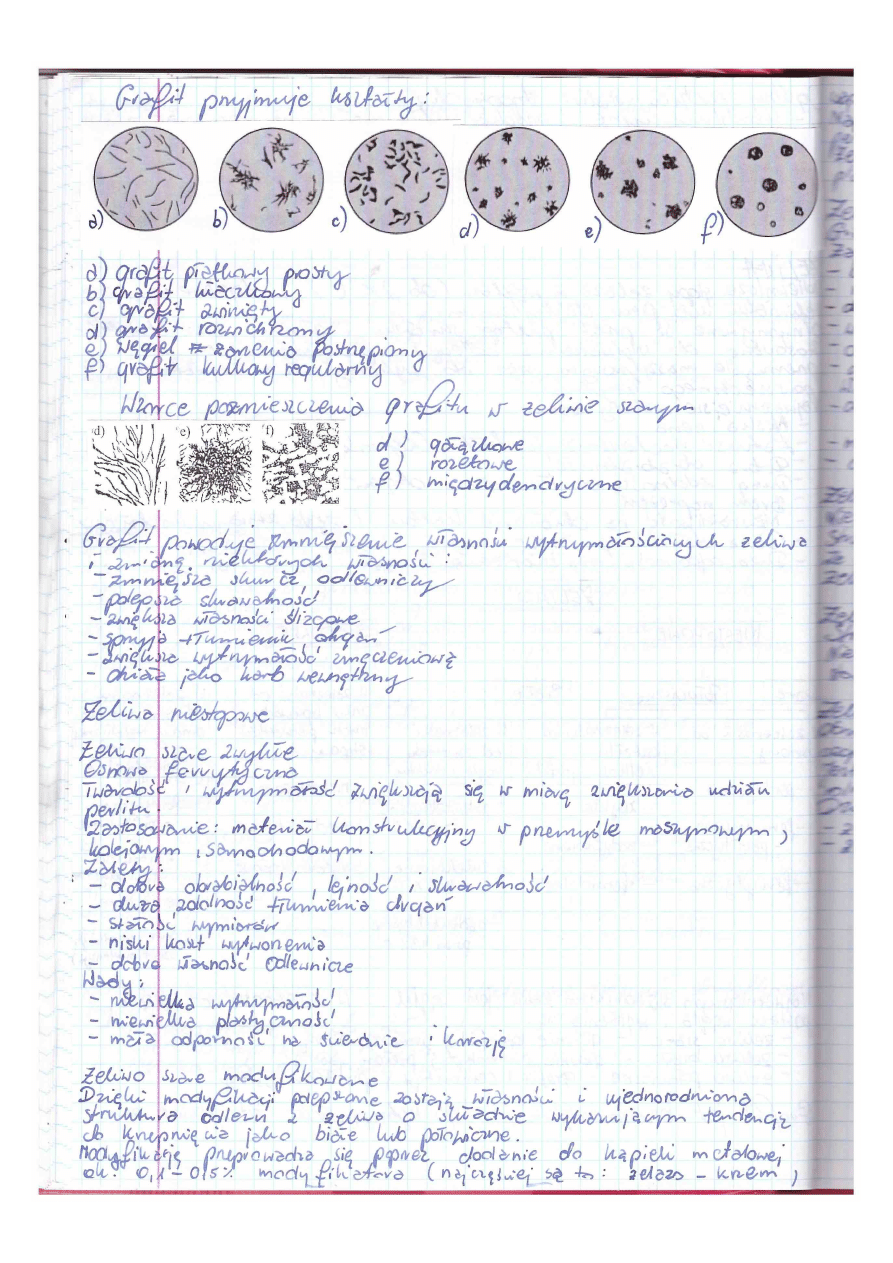 Grafit przyjmuje kształty:
a) b) c) d) e) f)
a) grafit płatkowy prosty
b) grafit kłaczkowy
c) grafit zwinięty
d) grafit rozwichrzony
e) węgiel żarzenia postrzępiony
f) grafit kulkowy regularny
Wzorce rozmieszczenia grafitu w żeliwie szarym
d) e) f)
d) gałązkowe
e) rozetowe
f) międzydendryczne
Grafit powoduje zmniejszenie własności wytrzymałościowych żeliwa
i zmianę niektórych własności:
- zmniejsza skurcz odlewniczy
- polepsza skrawalność
- zwiększa własności ślizgowe
- sprzyja tłumieniu drgań
- zwiększa wytrzymałość zmęczeniową
- działa jako karb wewnętrzny
Żeliwa niestopowe
Żeliwo szare zwykłe
Osnowa ferrytyczna
Twardość i wytrzymałość zwiększają się w miarę zwiększania udziału
perlitu.
Zastosowanie: materiał konstrukcyjny w przemyśle maszynowym,
kolejowym, samochodowym.
Zalety:
- dobra obrabialność, lejność i skrawalność
- duża zdolność tłumienia drgań
- stałość wymiarów
- niski koszt wytworzenia
- dobre własność odlewnicze
Wady:
- niewielka wytrzymałość
- niewielka plastyczność
- mała odporność na ścieranie i korozję
Żeliwo szare modyfikowane
Dzięki modyfikacji polepszone zostają własności i ujednorodniona
struktura odlewu z żeliwa o składzie wykazującym tendencję
do krzepnięcia jako białe lub połowiczne.
Modyfikację przeprowadza się poprzez dodanie do kąpieli metalowej
ok. 0,1-0,5% modyfikatora (najczęściej są to: żelazo - krzem,